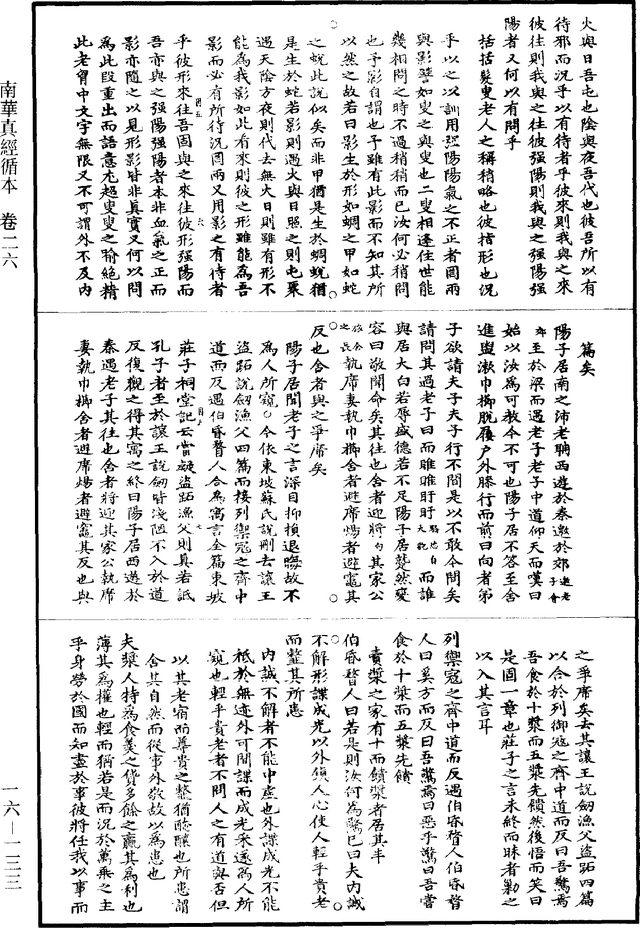 火與日吾屯也陰與夜吾代也彼吾所以有
待邪而況乎以有待者乎彼來則我與之來
彼往則我與之往彼强陽則我與之强陽强
陽者又何以有問乎
括括髮叟老人之稱稍略也彼搢形也況
乎以之以訓用强陽陽氣之不正者罔兩
與影譬如叟之與叟也二叟相逢住世能
幾相問之時不過稍稍而已汝何必稍問
也予影自謂也予雖有此影而不知其所
以然之故若曰影生於形如蜩之甲如蛇
之蛻此說似矣而非甲猶是生於蜩蛻猶
是生於蛇若影則遇火與日照之則屯聚
遇天陰方夜則代去無火日則雖有形不
能為我影如此看來則彼之形雖能為吾
影而必有所待況罔兩又用影之有待者
乎彼形來往吾固與之來往彼形强陽而
吾亦與之强陽强陽者本非血氣之正而
影亦隨之以見形影皆非真實又何以問
為此段重出而語意尤超叟叟之喻絕精
此老胷中文字無限又不可謂外不及內
篇矣
陽子居南之沛老聃西遊於秦邀於郊
至於梁而遇老子老子中道仰天而嘆曰
始以汝為可教今不可也陽子居不答至舍
進盥漱巾櫛脫屨戶外膝行而前曰向者弟
子欲請夫子夫子行不閒是以不敢今閒矣
請問其過老子曰而睢睢盱盱而誰
與居大白若辱盛德若不足陽子居蹵然變
容曰敬聞命矣其往也舍者迎將其家公
執席妻執巾櫛舍者避席煬者避竈其
反也舍者與之爭席矣
陽子居聞老子之言深自抑損退晦故不
為人所窺○今依東坡蘇氏說刪去讓王
盜跖說劍漁父四篇而接列禦寇之齊中
道而反遇伯昏瞀人合為寓言全篇東坡
莊子祠堂記云嘗疑盜跖漁父則真若詆
孔子者至於讓王說劍皆淺陋不入於道
反復觀之得其寓之終曰陽子居西遊於
秦遇老子其往也舍者將迎其家公執席
妻執巾櫛舍者避席煬者避竈其反也與
之爭席矣去其讓王說劍漁父盜跖四篇
以合於列御寇之齊中道而反曰吾驚焉
吾食於十漿而五漿先饋然後悟而笑曰
是固一章也莊子之言未終而昧者勦之
以入其言耳
列禦寇之齊中道而反遇伯昏瞀人伯昏瞀
人曰奚方而反曰吾驚焉曰惡乎驚曰吾嘗
食於十漿而五漿先饋
賣漿之家有十而饋漿者居其半
伯昏瞀人曰若是則汝何為驚已曰夫內誠
不解形諜成光以外鎮人心使人輕乎貴老
而䪠其所患
內誠不解者不能中虛也外諜成光不能
袛於無迹外可間諜而成光采遂為人所
窺也輕乎貴老者不問人之有道與否但
以其老宿而尊貴之䪠猶醞釀也所患謂
舍其自然而從事外敬故以為患也
夫漿人特為食羹之貨多餘之贏其為利也
薄其為權也輕而猶若是而況於萬乘之主
乎身勞於國而知盡於事彼將任我以事而
南華真經循本　卷二六
一六—一三三